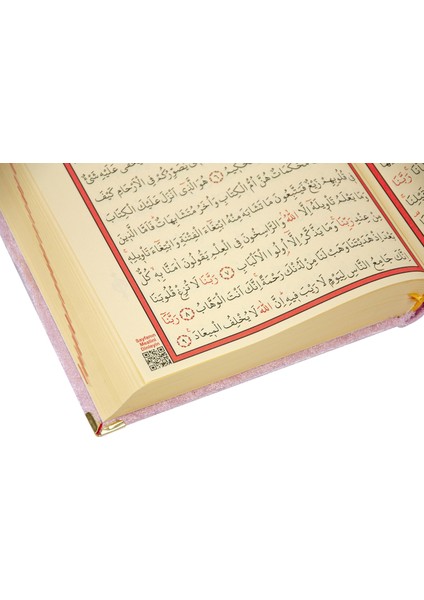 يَخْفٰى عَلَيْهِ شَيْءٌ
يُصَوِّرُكُمْ فِي الْاَرْحَامِ كَيْفَ
الْحَك۪يمُ ﴿٦﴾ هُوَ الَّذ۪ٓي اَنْزَلَ عَلَيْكَ الْكِتَابَ
مُحْكَمَاتٌ هُنَّ اُمُّ الْكِتَابِ وَاُخَرُ مُتَشَابِهَاتٌ فَاَمَّا الَّذ۪ينَ
ف۪ي قُلُوبِهِمْ زَيْغٌ فَيَتَّبِعُونَ مَا تَشَابَهَ مِنْهُ ابْتِغَٓاءَ الْفِتْنَةِ وَابْتِغَٓاءَ تَأْو۪يلِه۪
وَمَا يَعْلَمُ تَأْو۪يلَهُٓ اِلَّا اللّٰهُ وَالرَّاسِخُونَ فِي الْعِلْمِ يَقُولُونَ اٰمَنَّا بِه۪ كُلٌّ
مِنْ عِنْدِ رَبِّنَا وَمَا يَذَّكَّرُ اِلَّٓا اُو۬لُوا الْاَلْبَابِ ﴿٧﴾ رَبَّنَا لَا تُزِغْ قُلُوبَنَا
بَعْدَ اِذْ هَدَيْتَنَا وَهَبْ لَنَا مِنْ لَدُنْكَ رَحْمَةً اِنَّكَ اَنْتَ الْوَهَّابُ ﴿٨﴾ رَبَّنَٓا
اِنَّكَ جَامِعُ النَّاسِ لِيَوْمٍ لَا رَيْبَ ف۪يهِ اِنَّ اللّٰهَ لَا يُخْلِفُ الْم۪يعَادَ ﴿٩﴾
Sayfanın
Mealini
Dinleyin